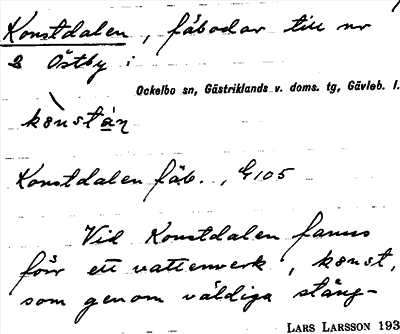 Konstdalen, fäbodar till nr
2 Östby i
Ockelbo sn, Gästriklands v. doms. tg, Gävleb. l.
Konstdalen fäb., G105
Vid Konstdalen fanns
förr ett vattenverk, konst,
som genom väldiga stång-
LARS LARSSON 193